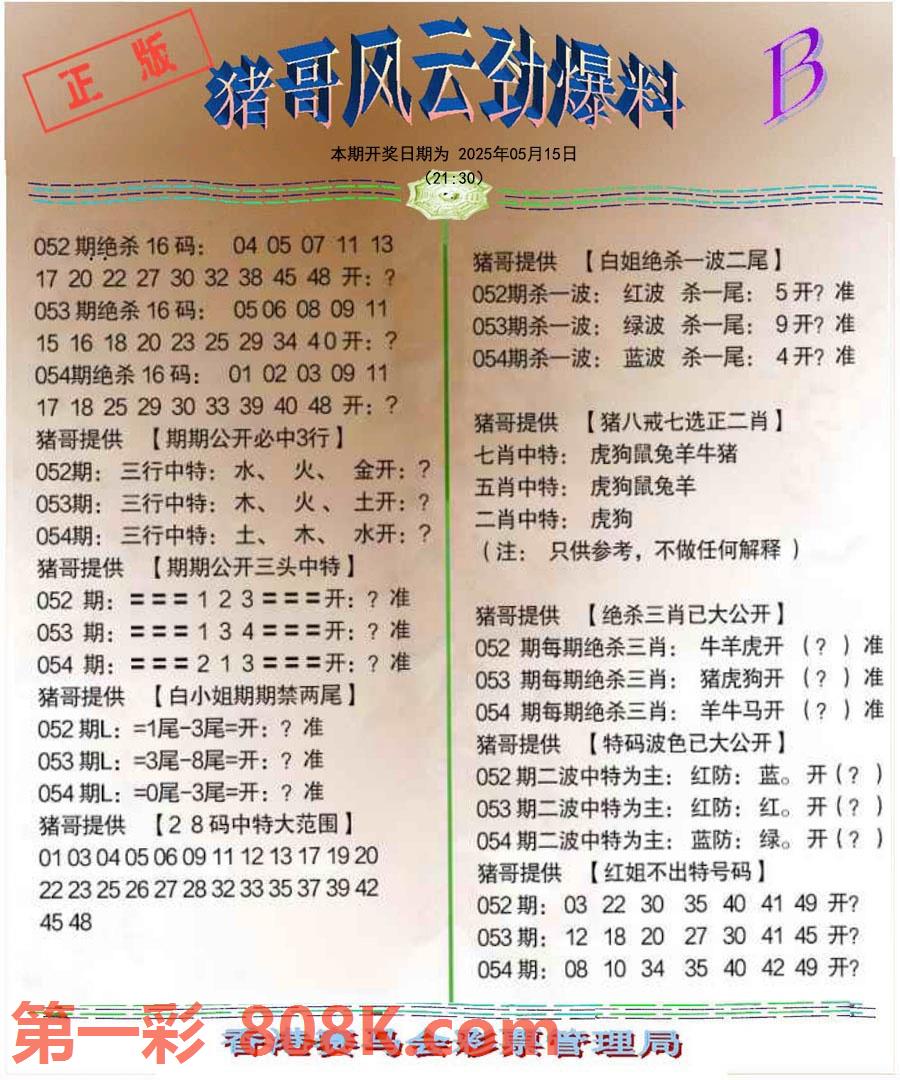 正版
猪哥风云劲爆料
B
本期开奖日期为 2025年05月15日
(21:30)
052期绝杀16码: 04 05 07 11 13
17 20 22 27 30 32 38 45 48 开:?
053期绝杀16码: 05 06 08 09 11
15 16 18 20 23 25 29 34 40开:?
054期绝杀16码: 01 02 03 09 11
17 18 25 29 30 33 39 40 48 开:?
猪哥提供 【期期公开必中3行】
052期: 三行中特: 水、 火、 金开:?
053期: 三行中特: 木、 火、 土开:?
054期: 三行中特: 土、 木、 水开:?
猪哥提供 【期期公开三头中特】
052 期: === 1 2 3 ===开:? 准
053 期: === 1 3 4 ===开:? 准
054 期: === 2 1 3 ===开:? 准
猪哥提供 【白小姐期期禁两尾】
052期L: =1尾-3尾=开:? 准
053期L: =3尾-8尾=开:? 准
054期L: =0尾-3尾=开:? 准
猪哥提供 【28码中特大范围】
01 03 04 05 06 09 11 12 13 17 19 20
22 23 25 26 27 28 32 33 35 37 39 42
45 48
猪哥提供 【白姐绝杀一波二尾】
052期杀一波: 红波 杀一尾: 5开? 准
053期杀一波: 绿波 杀一尾: 9开? 准
054期杀一波: 蓝波 杀一尾: 4开? 准
猪哥提供 【猪八戒七选正二肖】
七肖中特: 虎狗鼠兔羊牛猪
五肖中特: 虎狗鼠兔羊
二肖中特: 虎狗
(注: 只供参考,不做任何解释 )
猪哥提供 【绝杀三肖已大公开】
052 期每期绝杀三肖: 牛羊虎开 (? )准
053 期每期绝杀三肖: 猪虎狗开 (? )准
054 期每期绝杀三肖: 羊牛马开 (? )准
猪哥提供 【特码波色已大公开】
052期二波中特为主: 红防: 蓝。开(? )
053期二波中特为主: 红防: 红。开(? )
054期二波中特为主: 蓝防: 绿。开(? )
猪哥提供 【红姐不出特号码】
052期: 03 22 30 35 40 41 49 开?
053期: 12 18 20 27 30 41 45 开?
054期: 08 10 34 35 40 42 49 开?
第一彩 808K.com
香港赛马会彩票管理局